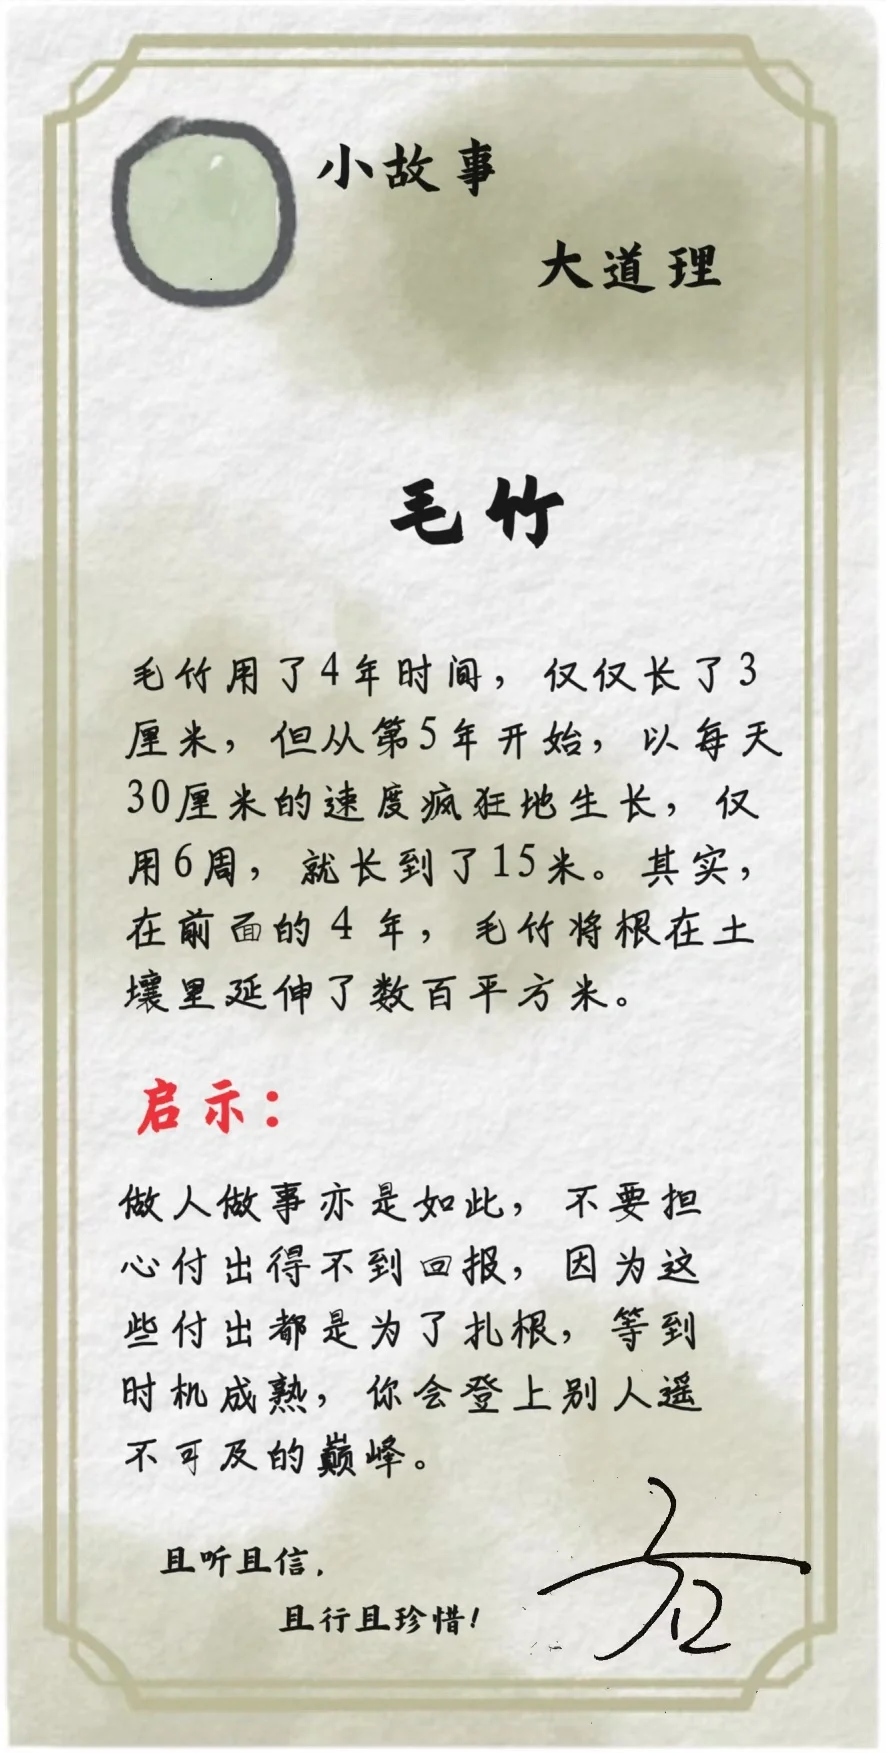 小故事
大道理
毛竹
毛竹用了4年时间，仅仅长了3
厘米，但从第5年开始，以每天
30厘米的速度疯狂地生长，仅
用6周，就长到了15米。其实，
在前面的4年，毛竹将根在土
壤里延伸了数百平方米。
启示：
做人做事亦是如此，不要担
心付出得不到回报，因为这
些付出都是为了扎根，等到
时机成熟，你会登上别人遥
不可及的巅峰。
且听且信，
且行且珍惜！